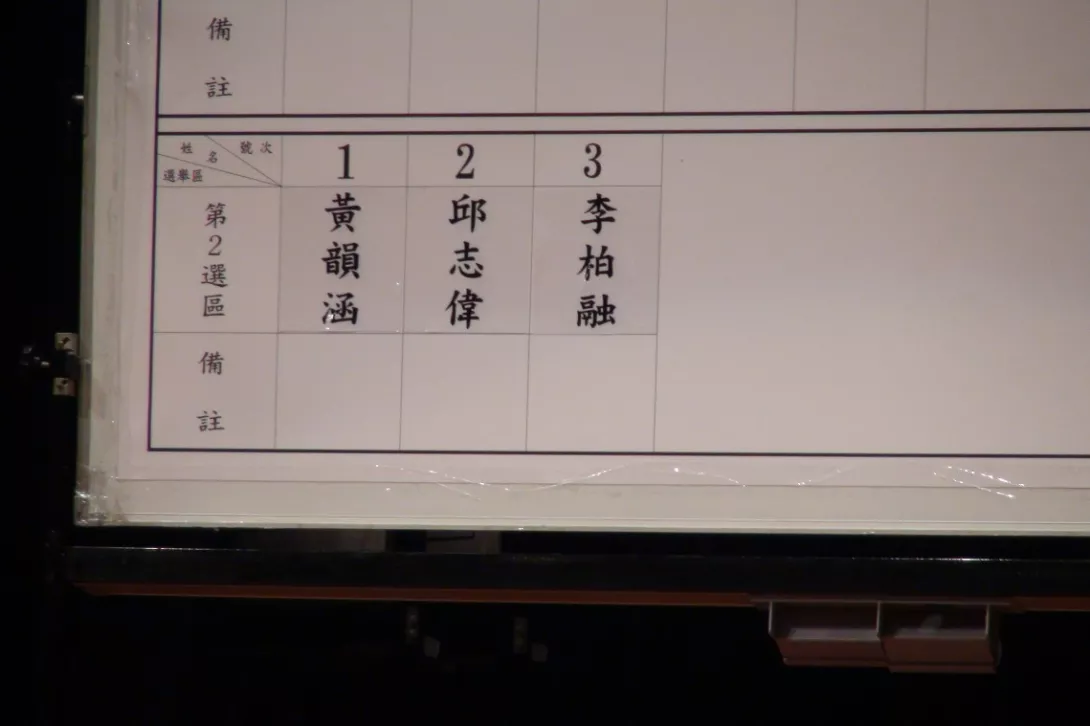 備註
姓名 號次
選舉區
1 2 3
第2選區
黃韻涵
邱志偉
李柏融
備註